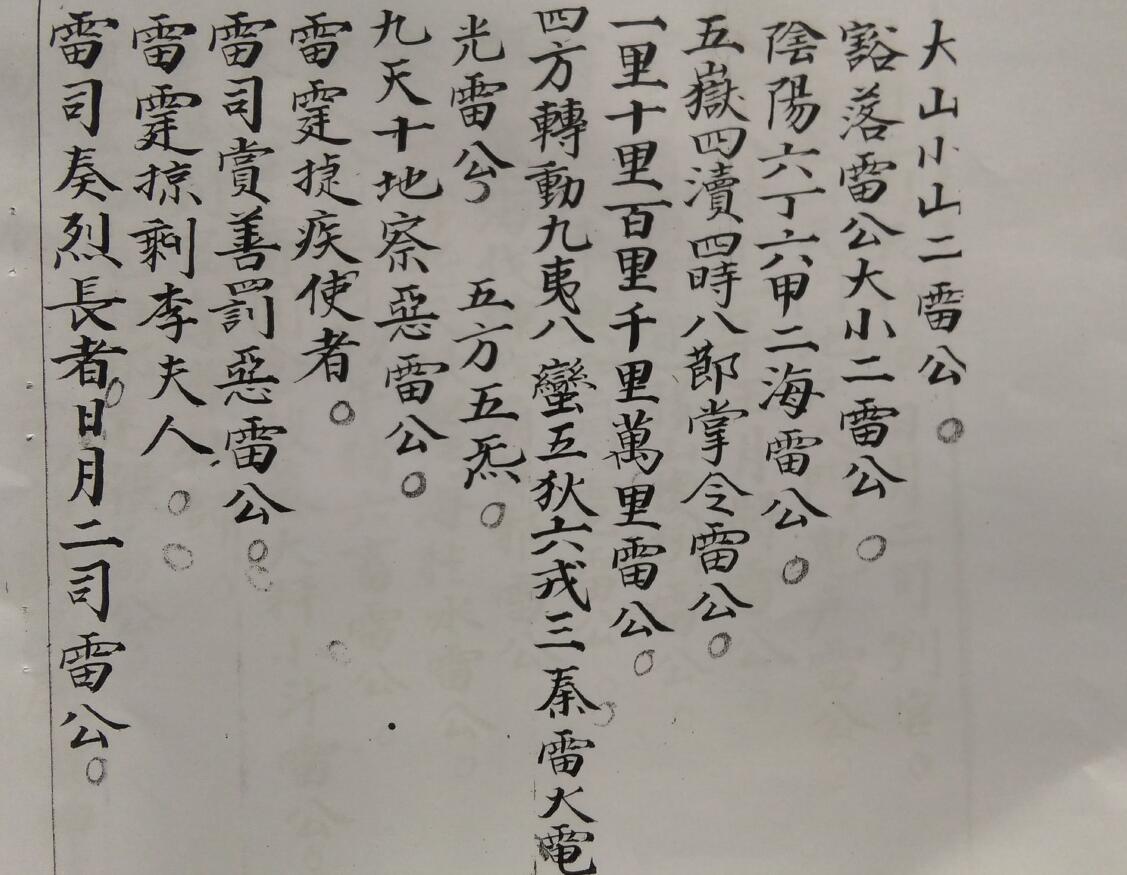 大山小山二雷公○
豁落雷公大小二雷公○
陰陽六丁六甲二海雷公○
五嶽四瀆四時八節掌令雷公○
一里十里百里千里萬里雷公○
四方轉動九夷八蠻五狄六戎三秦雷火電
光雷公　五方五炁○
九天十地察惡雷公○
雷霆㨗疾使者○
雷司賞善罰惡雷公○
雷霆掠剩李夫人○
雷司奏烈長者○日月二司雷公○